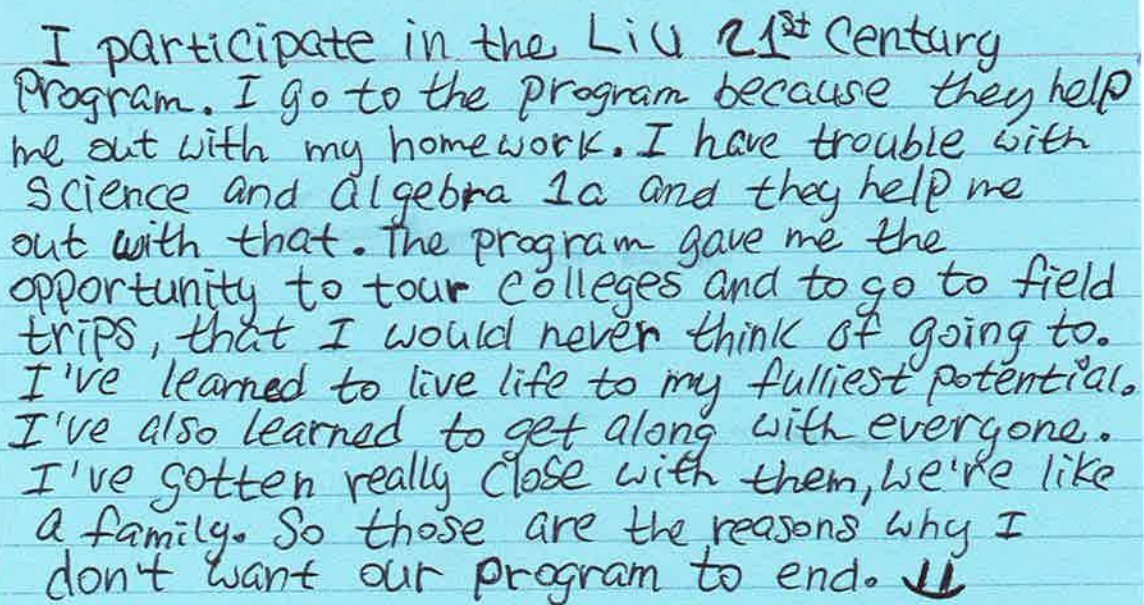 I participate in the LiU 21st Century
Program. I go to the program because they help
me out with my homework. I have trouble with
science and algebra 1a and they help me
out with that. The program gave me the
opportunity to tour colleges and to go to field
trips, that I would never think of going to.
I've learned to live life to my fulliest potential.
I've also learned to get along with everyone.
I've gotten really close with them, we're like
a family. So those are the reasons why I
don't want our program to end.